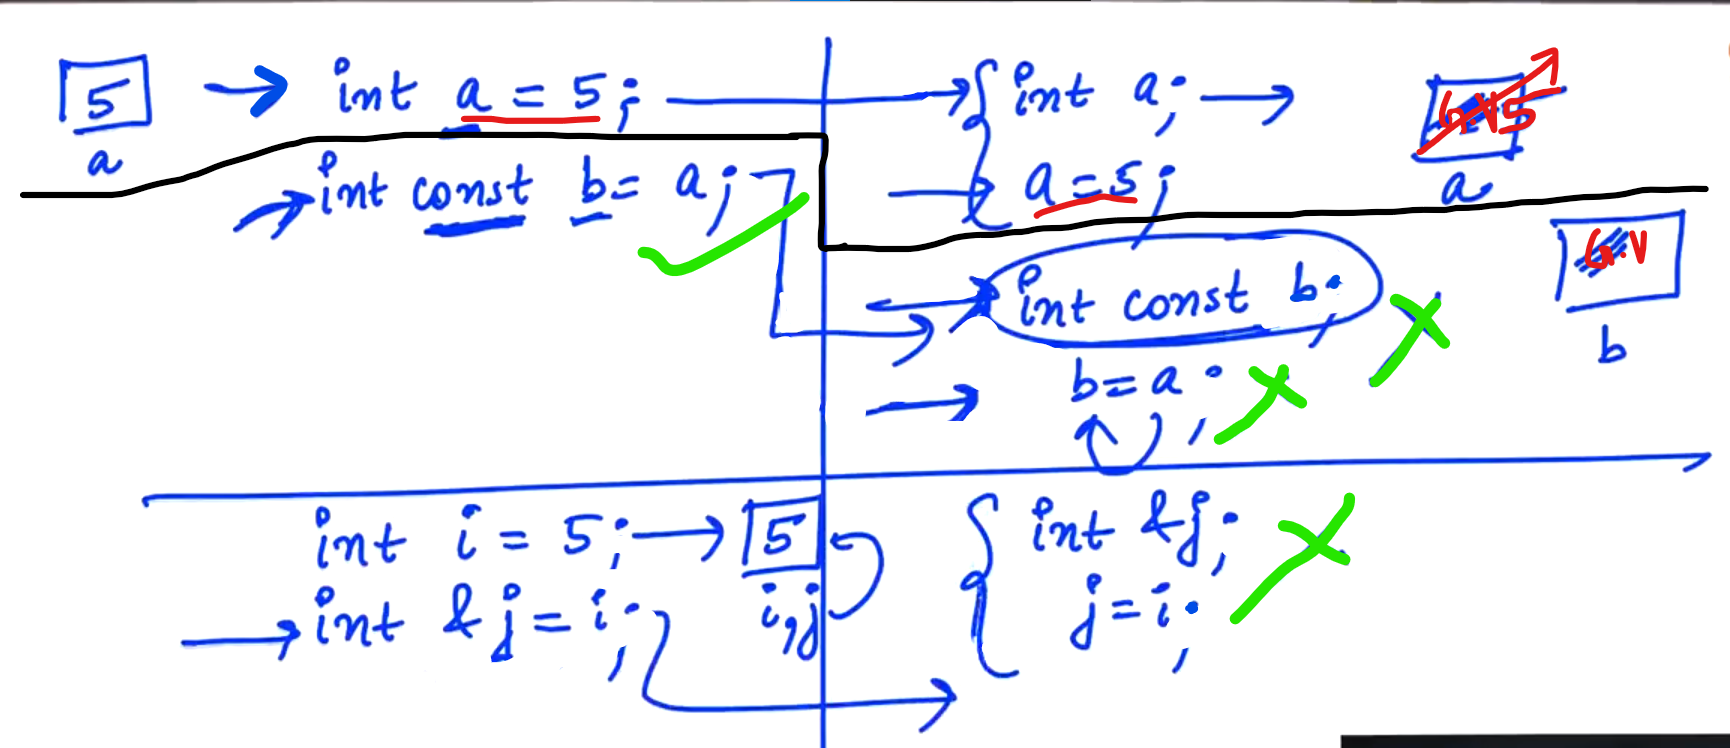 5
a
int a = 5;
int const b = a;
int a;
a = 5;
G.V 5
a
int const b;
b = a;
G.V
b
int i = 5;
5
int &j = i;
i, j
int &j;
j = i;